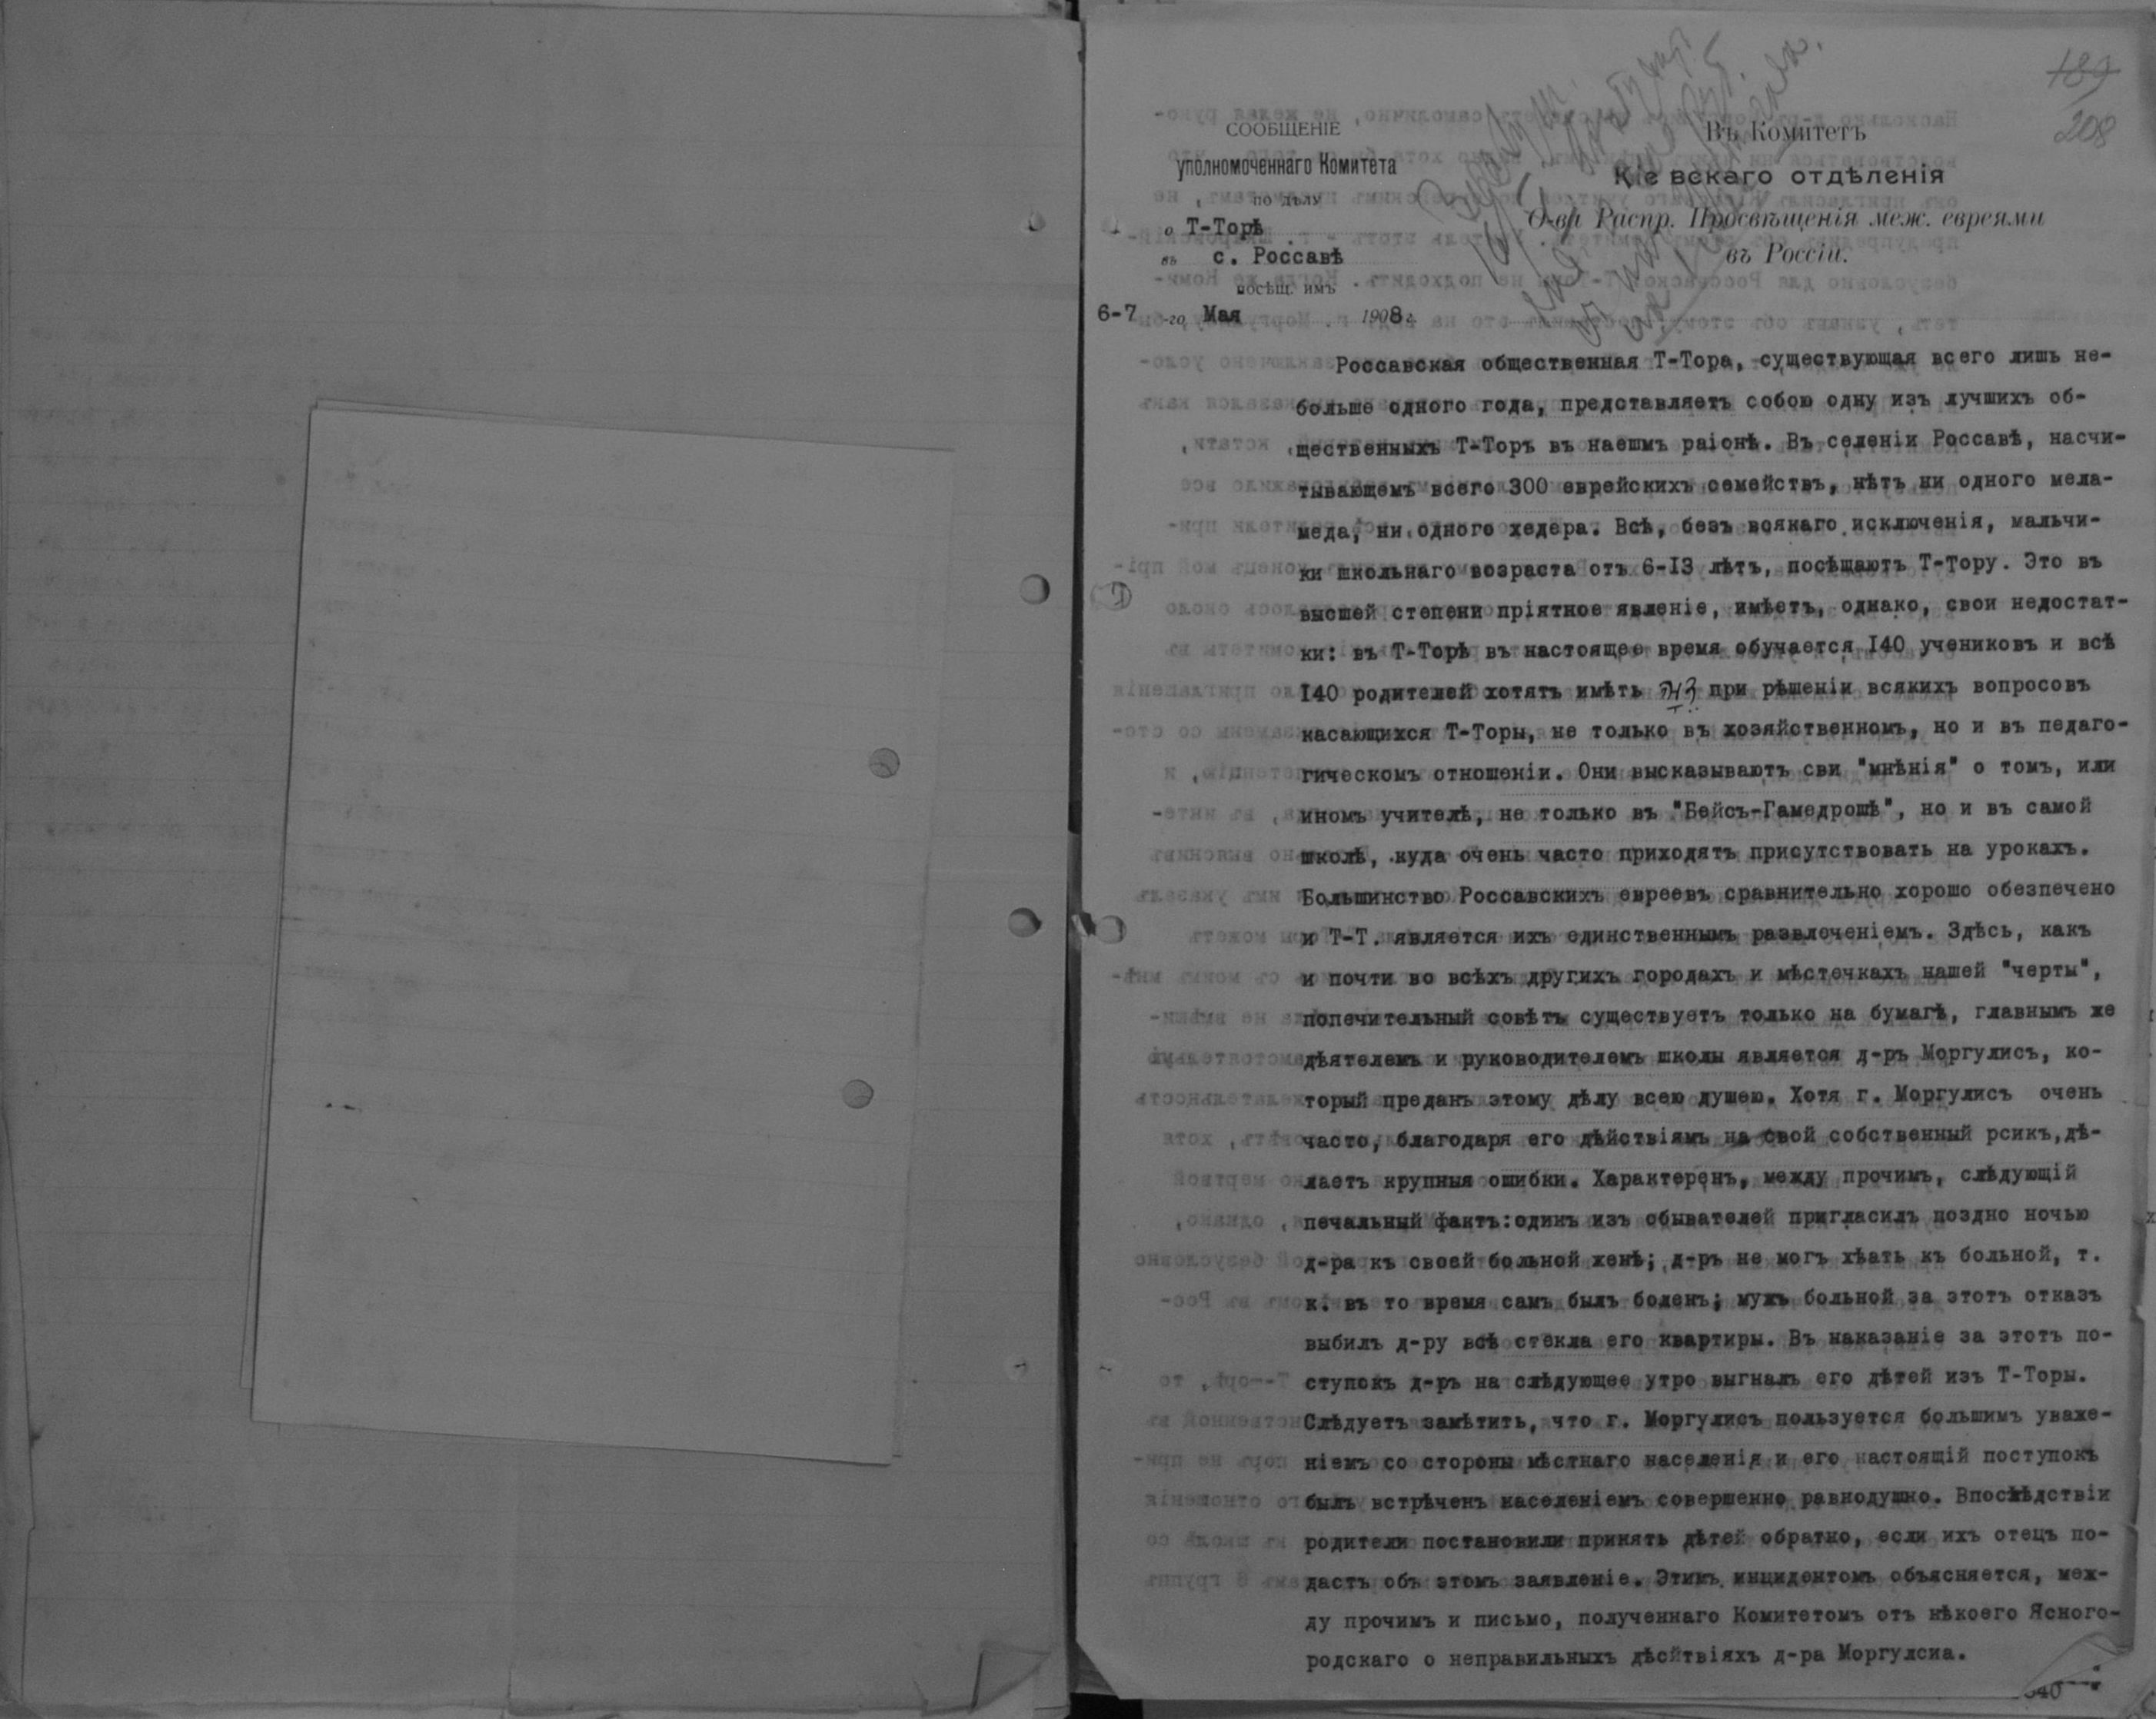 189
208
СООБЩЕНІЕ
уполномоченнаго Комитета
по дѣлу
о Т-Торѣ
въ с. Россавѣ
посѣщ. имъ
6-7 -го Мая 1908 г.
Въ Комитетъ
Кіевскаго отдѣленія
О-ва Распр. Просвѣщенія меж. евреями
въ Россіи.
Россавская общественная Т-Тора, существующая всего лишь не-
больше одного года, представляетъ собою одну изъ лучшихъ об-
щественныхъ Т-Торъ въ наешмъ раіонѣ. Въ селеніи Россавѣ, насчи-
тывающемъ всего 300 еврейскихъ семействъ, нѣтъ ни одного мела-
меда, ни одного хедера. Всѣ, безъ всякаго исключенія, мальчи-
ки школьнаго возраста отъ 6-I3 лѣтъ, посѣщаютъ Т-Тору. Это въ
высшей степени пріятное явленіе, имѣетъ, однако, свои недостат-
ки: въ Т-Торѣ въ настоящее время обучается I40 учениковъ и всѣ
I40 родителей хотятъ имѣть при рѣшеніи всякихъ вопросовъ
касающихся Т-Торы, не только въ хозяйственномъ, но и въ педаго-
гическомъ отношеніи. Они высказываютъ сви "мнѣнія" о томъ, или
иномъ учителѣ, не только въ "Бейсъ-Гамедрошѣ", но и въ самой
школѣ, куда очень часто приходятъ присутствовать на урокахъ.
Большинство Россавскихъ евреевъ сравнительно хорошо обезпечено
и Т-Т. является ихъ единственнымъ развлеченіемъ. Здѣсь, какъ
и почти во всѣхъ другихъ городахъ и мѣстечкахъ нашей "черты",
попечительный совѣтъ существуетъ только на бумагѣ, главнымъ же
дѣятелемъ и руководителемъ школы является д-ръ Моргулисъ, ко-
торый преданъ этому дѣлу всею душею. Хотя г. Моргулисъ очень
часто, благодаря его дѣйствіямъ на свой собственный рсикъ,дѣ-
лаетъ крупныя ошибки. Характеренъ, между прочимъ, слѣдующій
печальный фактъ:одинъ изъ обывателей пригласилъ поздно ночью
д-ра къ своей больной женѣ; д-ръ не могъ хѣать къ больной, т.
к. въ то время самъ былъ боленъ; мужъ больной за этотъ отказъ
выбилъ д-ру всѣ стекла его квартиры. Въ наказаніе за этотъ по-
ступокъ д-ръ на слѣдующее утро выгналъ его дѣтей изъ Т-Торы.
Слѣдуетъ замѣтить, что г. Моргулисъ пользуется большимъ уваже-
ніемъ со стороны мѣстнаго населенія и его настоящій поступокъ
былъ встрѣченъ населеніемъ совершенно равнодушно. Впослѣдствіи
родители постановили принять дѣтей обратно, если ихъ отецъ по-
дастъ объ этомъ заявленіе. Этимъ инцидентомъ объясняется, меж-
ду прочимъ и письмо, полученнаго Комитетомъ отъ нѣкоего Ясного-
родскаго о неправильныхъ дѣсйтвіяхъ д-ра Моргулсиа.